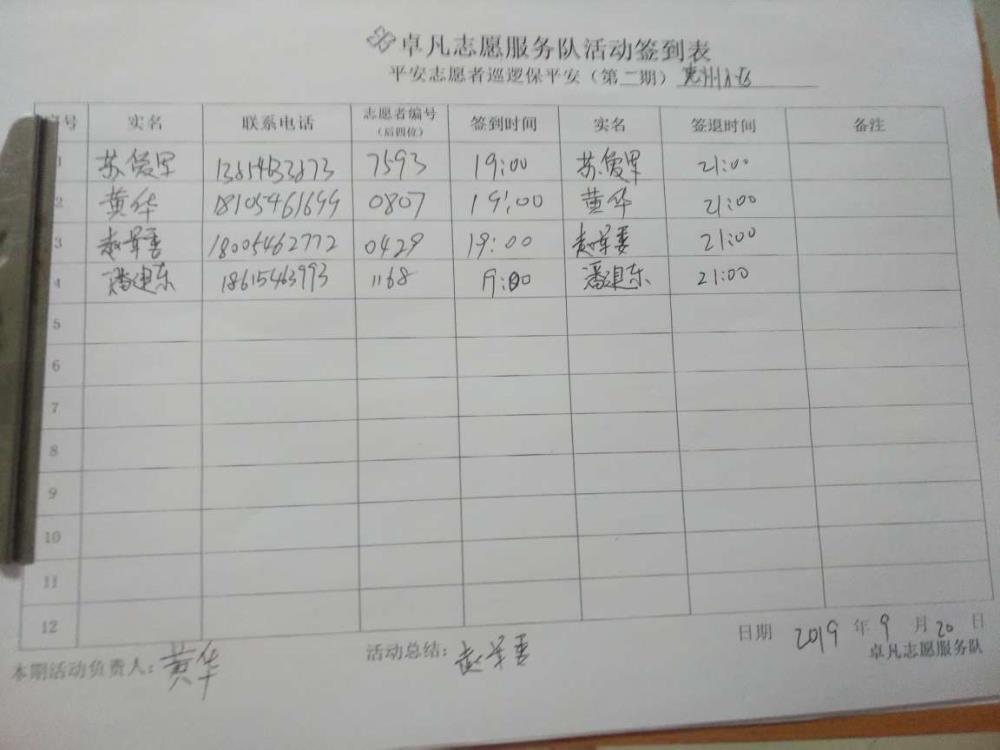 卓凡志愿服务队活动签到表
平安志愿者巡逻保平安（第二期）惠州
号 实名 联系电话 志愿者编号（后四位） 签到时间 实名 签退时间 备注
1 苏 7593 19:00 苏 21:00
2 黄华 18105461699 0807 19:00 黄华 21:00
3 赵军 18005462772 0429 19:00 赵军 21:00
4 潘建东 18615463993 1168 9:00 潘建东 21:00
5
6
7
8
9
10
11
12
日期 2019 年 9 月 20 日
本期活动负责人：黄华 活动总结：赵军
卓凡志愿服务队